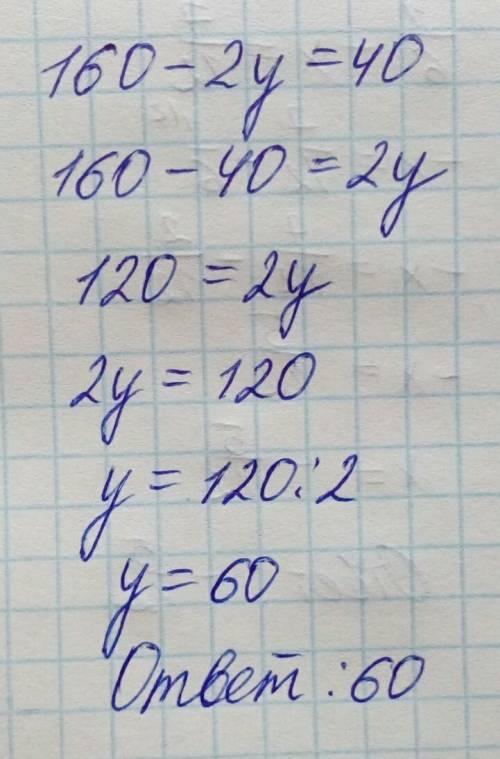 160 - 2y = 40
160 - 40 = 2y
120 = 2y
2y = 120
y = 120 : 2
y = 60
Ответ : 60